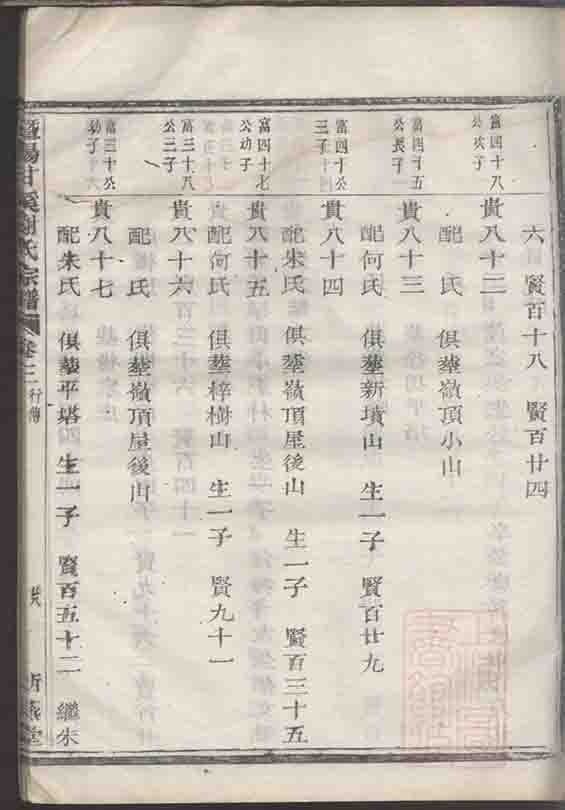 六 賢百十八 賢百廿四
富四十八
公次子
貴八十二
配 氏 俱塟嶺頂小山
富四十五
公長子
貴八十三
配何氏 俱塟新墳山 生一子 賢百廿九
富四十公
三子
貴八十四
配朱氏 俱塟嶺頂屋後山 生一子 賢百三十五
富四十七
公幼子
貴八十五
配何氏 俱塟梓樹山 生一子 賢九十一
富三十八
公三子
貴八十六
配 氏 俱塟嶺頂屋後山
富三十公
幼子
貴八十七
配朱氏 俱塟平塔 生一子 賢百五十二 繼朱
暨陽甘溪謝氏宗譜 卷二 行傳